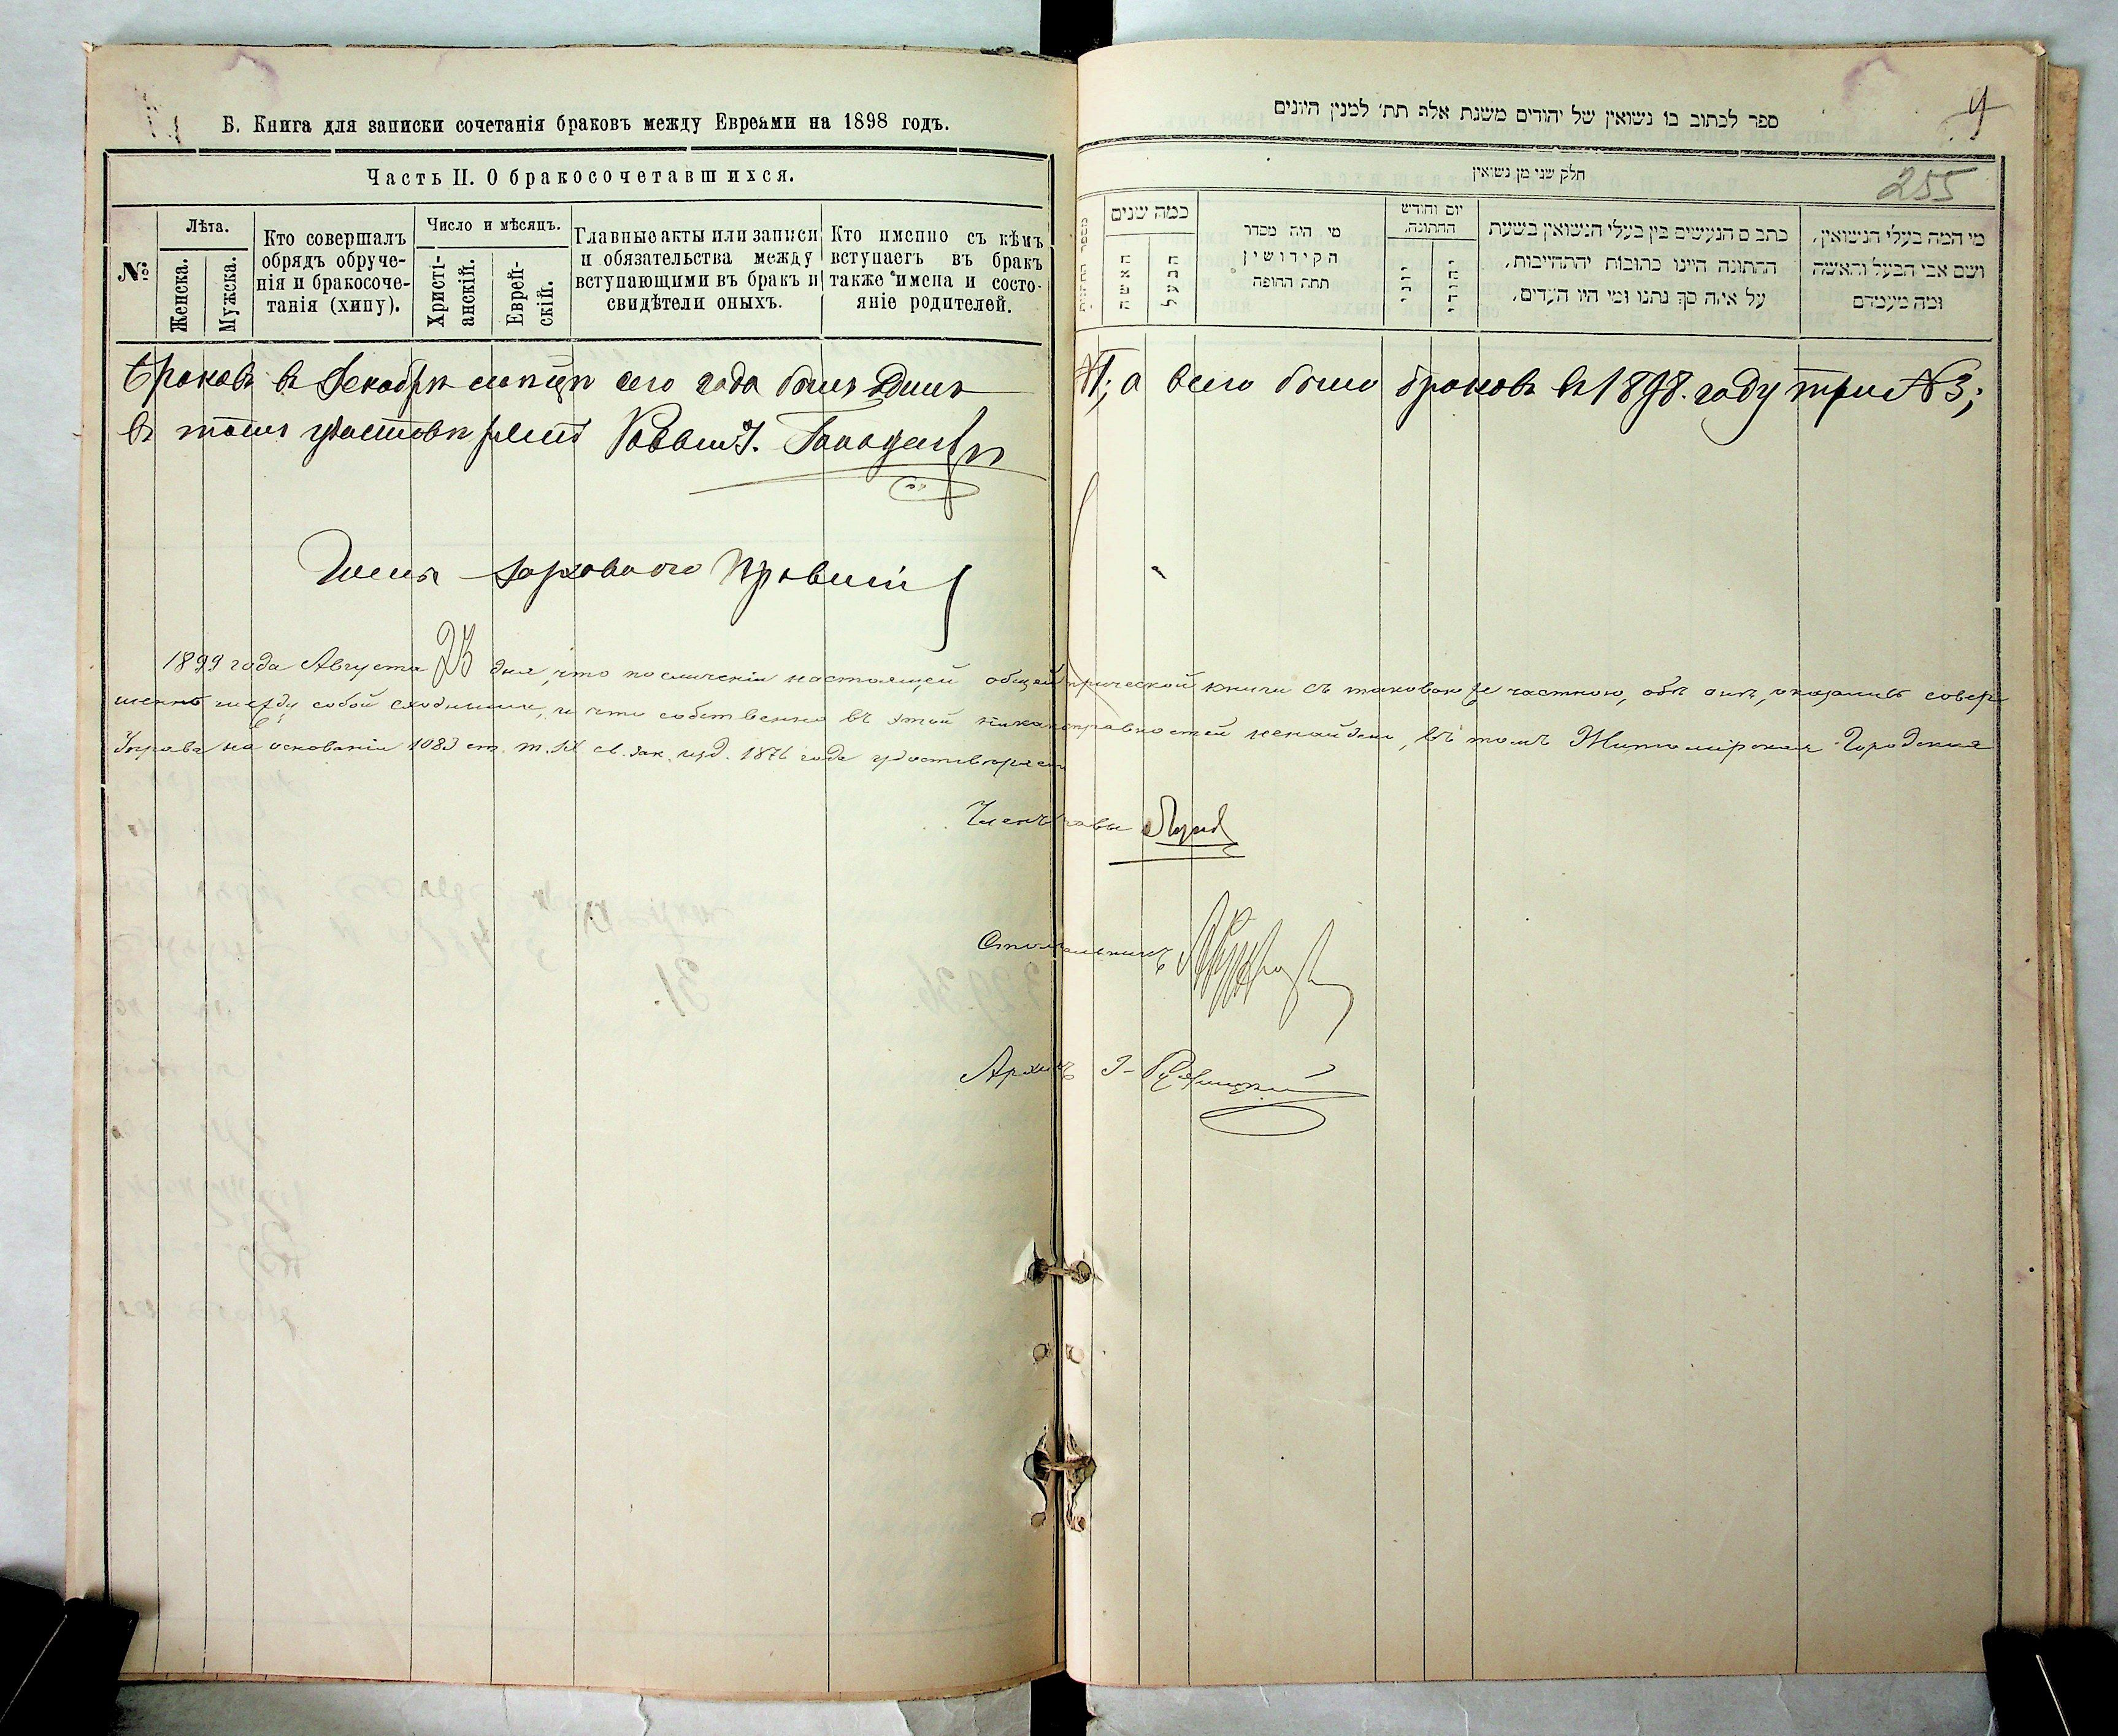 Б. Книга для записки сочетанія браковъ между Евреями на 1898 годъ.
Часть II. О бракосочетавшихся.
№
Лѣта.
Женска.
Мужска.
Кто совершалъ
обрядъ обруче-
нія и бракосоче-
танія (хипу).
Число и мѣсяцъ.
Христі-
анскій.
Еврей-
скій.
Главные акты или записи
и обязательства между
вступающими въ бракъ и
свидѣтели оныхъ.
Кто именно съ кѣмъ
вступаетъ въ бракъ
также имена и состо-
яніе родителей.
ספר לכתוב בו נשואין של יהודים משנת אלף תת׳ למנין היונים
9
חלק שני מן נשואין
255
כמה שנים
האשה
הבעל
מי היה מסדר
הקידושין
תחת החופה
יום וחודש
החתונה.
יוני
יהודי
כתב ם הנעשים בין בעלי הנישואין בשעת
החתונה היינו כתובות יהתחייבות,
על איזה סך נתנו ומי היו העדים,
מי המה בעלי הנישואין,
ושם אבי הבעל והאשה
ומה מעמדם
браковъ в Декабрѣ мѣсяцѣ сего года былъ Одинъ №1; а всего было браковъ въ 1898. году три №3;
в томъ удостовѣряетъ Раввинъ
Членъ Духовного Правленія
1899 года Августа 23 дня, что по сличеніи настоящей общей книги съ таковою же частною, обѣ онѣ оказались совер
шенно между собой сходными, и что собственно въ этой ненайдено, въ томъ Житомірская Городская
Управа на основаніи 1083 ст. т. IX св. зак. изд. 1876 года удостовѣряетъ
Членъ Управы
Столоначальникъ
Архив